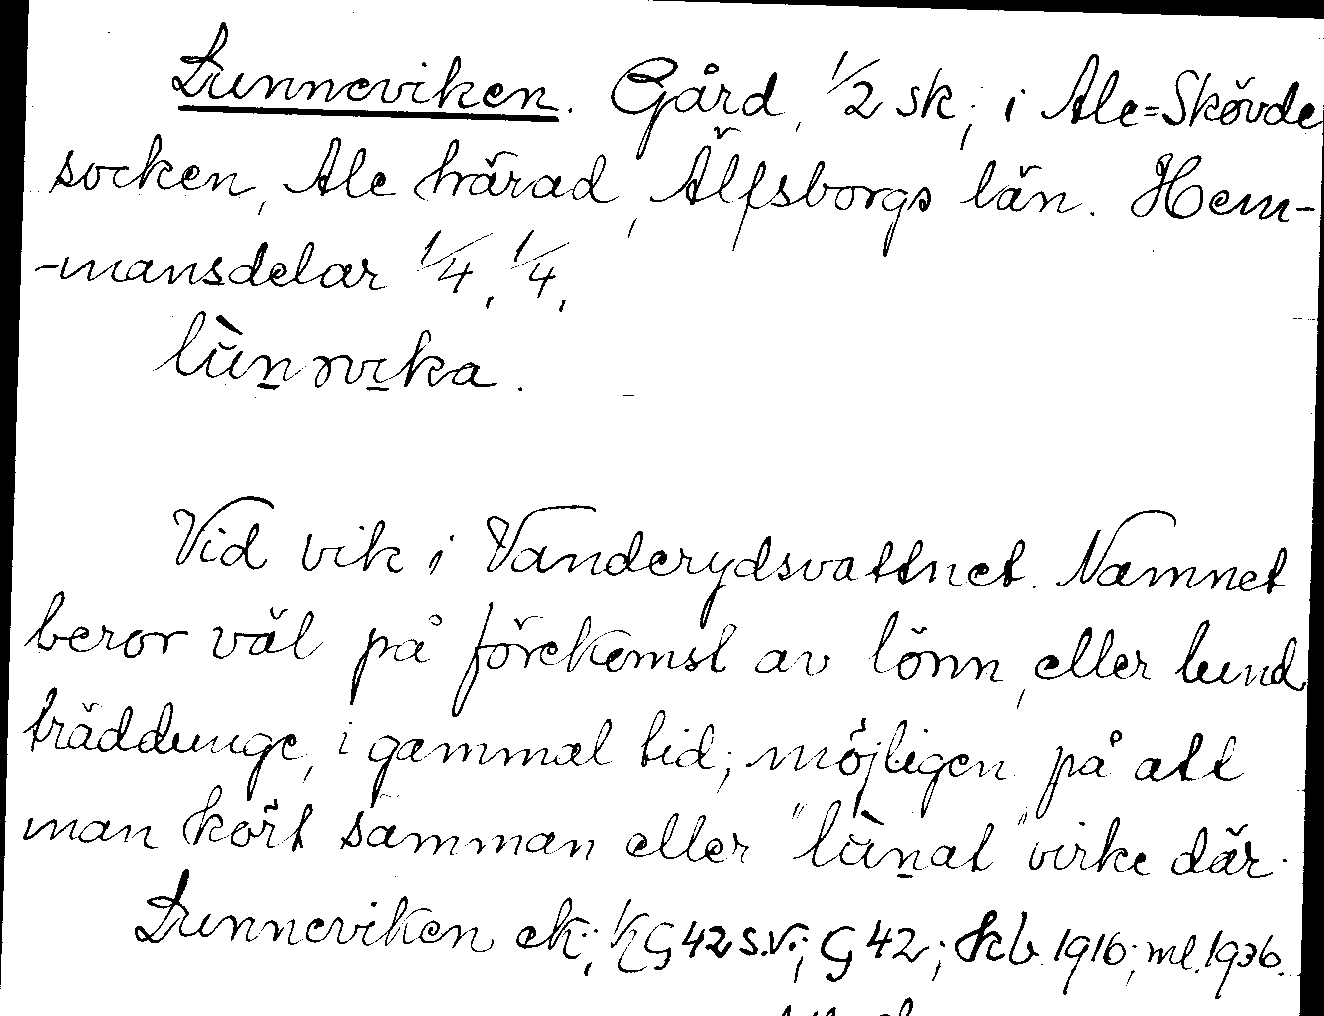 Lunneviken. Gård, 1/2 sk; i Ale=Skövde
socken, Ale härad, Älfsborgs län. Hem-
-mansdelar 1/4, 1/4,
lùn̲əvi̲ka.
Vid vik i Vanderydsvattnet. Namnet
beror väl på förekomst av lönn, eller lund
träddunge, i gammal tid; möjligen på att
man kört samman eller "lùn̲at" virke där.
Lunneviken ek; G 42 s.v.; G 42; kb 1916; ml. 1936.